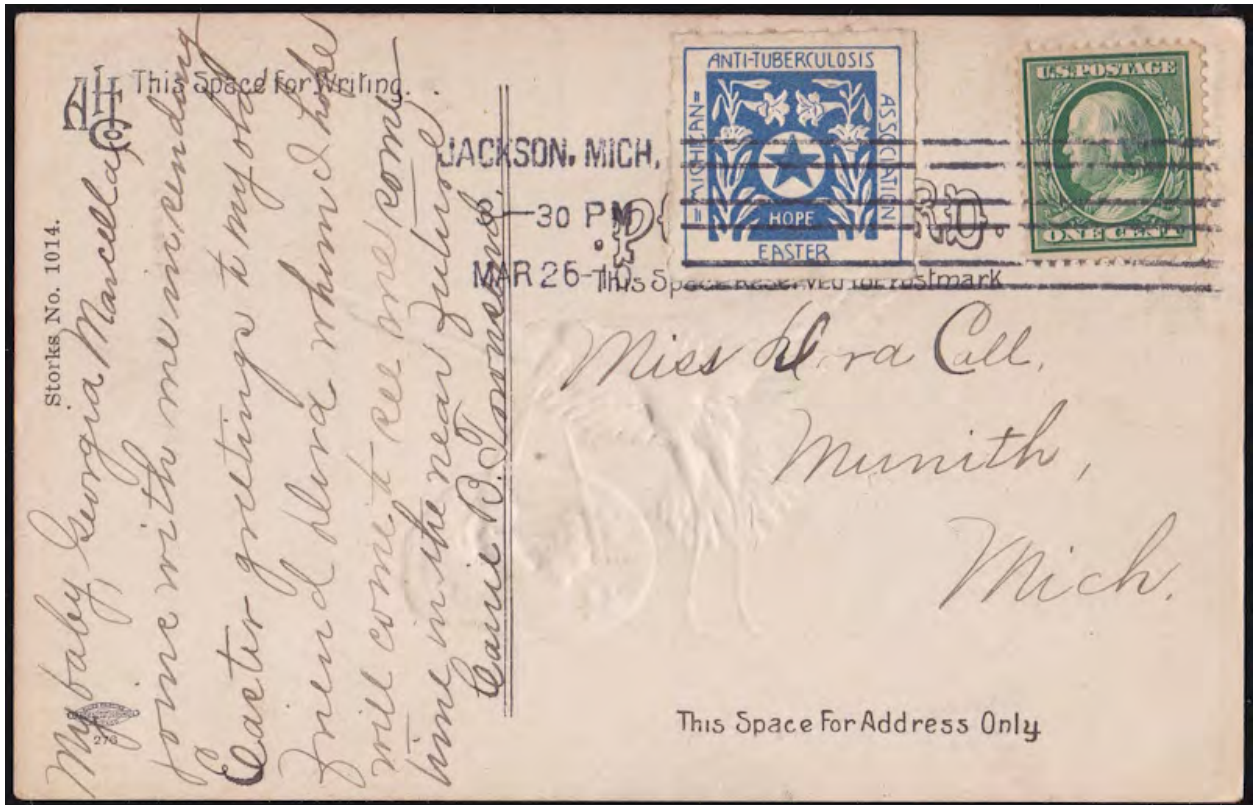 AH Co
This Space for Writing.
Storks No. 1014.
My baby, Georgia Marcella,
joins with me in sending
Easter greetings to my old
friend Dora whom I hope
will come to see me some
time in the near future
Carrie B. Townsend.
276
JACKSON, MICH.
30 PM
MAR 26-10
MICHIGAN
ANTI-TUBERCULOSIS
ASSOCIATION
HOPE
EASTER
U.S. POSTAGE
ONE CENT
This Space Reserved for Postmark
Miss Dora Call,
Munith,
Mich.
This Space For Address Only